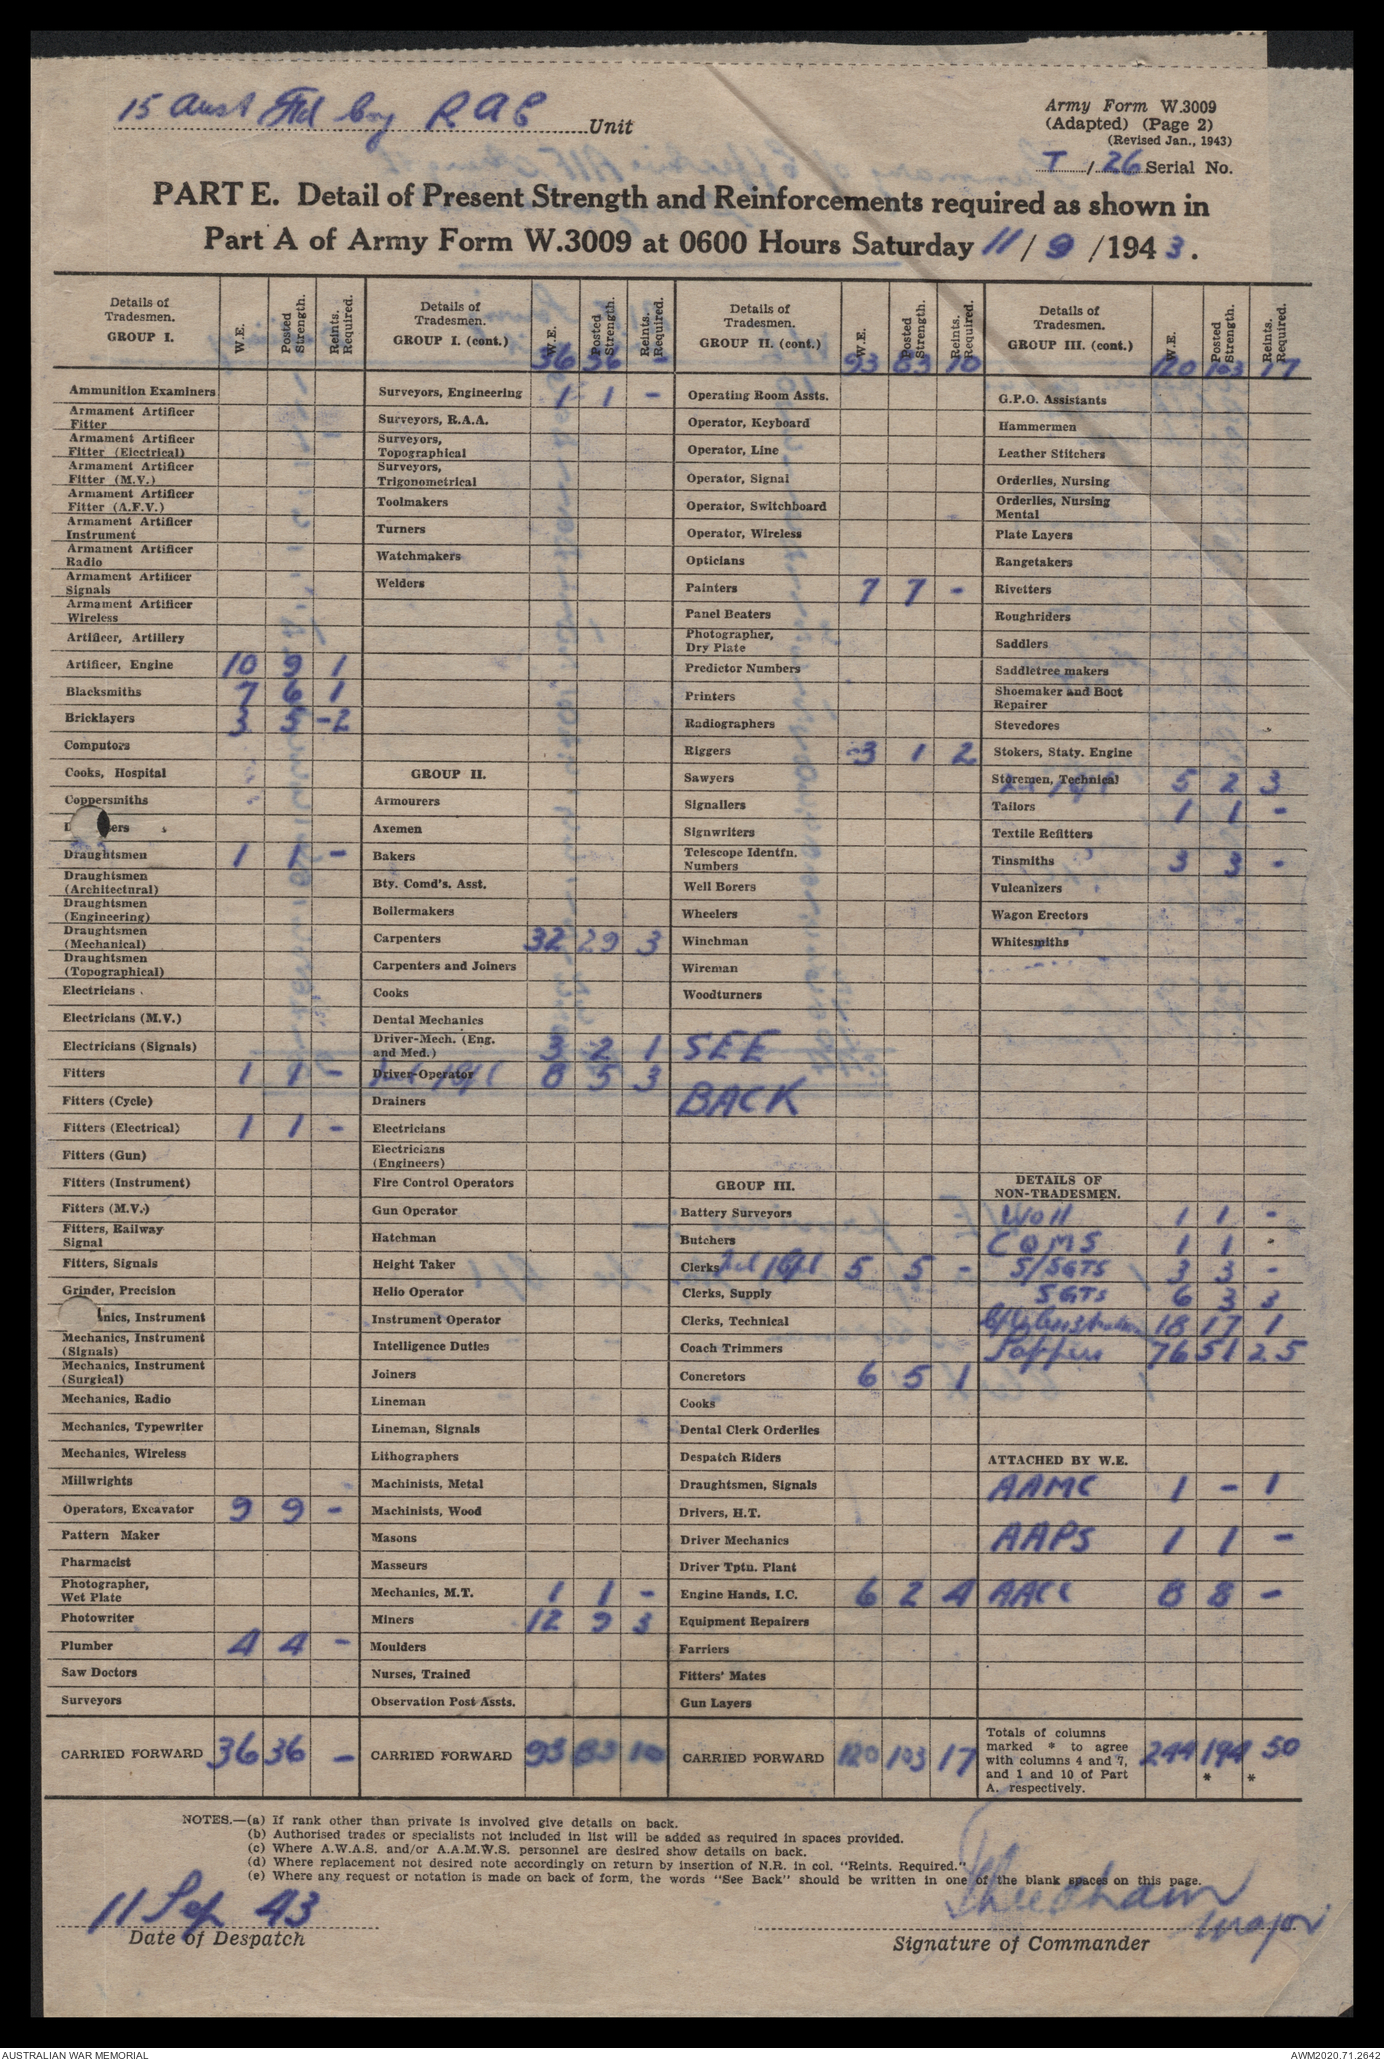 15 Aust Fld Coy R A E Unit
Army Form W.3009
(Adapted) (Page 2)
(Revised Jan., 1943)
T / 26 Serial No.
PART E. Detail of Present Strength and Reinforcements required as shown in
Part A of Army Form W.3009 at 0600 Hours Saturday 11 / 9 /1943.
Details of Tradesmen. GROUP I. W.E. Posted Strength. Reints. Required.
Ammunition Examiners
Armament Artificer Fitter
Armament Artificer Fitter (Electrical)
Armament Artificer Fitter (M.V.)
Armament Artificer Fitter (A.F.V.)
Armament Artificer Instrument
Armament Artificer Radio
Armament Artificer Signals
Armament Artificer Wireless
Artificer, Artillery
Artificer, Engine 10 9 1
Blacksmiths 7 6 1
Bricklayers 3 5 -2
Computors
Cooks, Hospital
Coppersmiths
Draughtsmen 1 1 -
Draughtsmen (Architectural)
Draughtsmen (Engineering)
Draughtsmen (Mechanical)
Draughtsmen (Topographical)
Electricians
Electricians (M.V.)
Electricians (Signals)
Fitters 1 1 -
Fitters (Cycle)
Fitters (Electrical) 1 1 -
Fitters (Gun)
Fitters (Instrument)
Fitters (M.V.)
Fitters, Railway Signal
Fitters, Signals
Grinder, Precision
nics, Instrument
Mechanics, Instrument (Signals)
Mechanics, Instrument (Surgical)
Mechanics, Radio
Mechanics, Typewriter
Mechanics, Wireless
Millwrights
Operators, Excavator 9 9 -
Pattern Maker
Pharmacist
Photographer, Wet Plate
Photowriter
Plumber 4 4 -
Saw Doctors
Surveyors
CARRIED FORWARD 36 36 -
Details of Tradesmen. GROUP I. (cont.) W.E. Posted Strength. Reints. Required.
36 36 -
Surveyors, Engineering 1 1 -
Surveyors, R.A.A.
Surveyors, Topographical
Surveyors, Trigonometrical
Toolmakers
Turners
Watchmakers
Welders
GROUP II.
Armourers
Axemen
Bakers
Bty. Comd's. Asst.
Boilermakers
Carpenters 32 29 3
Carpenters and Joiners
Cooks
Dental Mechanics
Driver-Mech. (Eng. and Med.) 3 2 1
Driver-Operator 8 5 3
Drainers
Electricians
Electricians (Engineers)
Fire Control Operators
Gun Operator
Hatchman
Height Taker
Helio Operator
Instrument Operator
Intelligence Duties
Joiners
Lineman
Lineman, Signals
Lithographers
Machinists, Metal
Machinists, Wood
Masons
Masseurs
Mechanics, M.T. 1 1 -
Miners 12 9 3
Moulders
Nurses, Trained
Observation Post Assts.
CARRIED FORWARD 93 83 10
Details of Tradesmen. GROUP II. (cont.) W.E. Posted Strength. Reints. Required.
93 83 10
Operating Room Assts.
Operator, Keyboard
Operator, Line
Operator, Signal
Operator, Switchboard
Operator, Wireless
Opticians
Painters 7 7 -
Panel Beaters
Photographer, Dry Plate
Predictor Numbers
Printers
Radiographers
Riggers 3 1 2
Sawyers
Signallers
Signwriters
Telescope Identfn. Numbers
Well Borers
Wheelers
Winchman
Wireman
Woodturners
SEE
BACK
GROUP III.
Battery Surveyors
Butchers
Clerks 5 5 -
Clerks, Supply
Clerks, Technical
Coach Trimmers
Concretors 6 5 1
Cooks
Dental Clerk Orderlies
Despatch Riders
Draughtsmen, Signals
Drivers, H.T.
Driver Mechanics
Driver Tptn. Plant
Engine Hands, I.C. 6 2 4
Equipment Repairers
Farriers
Fitters' Mates
Gun Layers
CARRIED FORWARD 120 103 17
Details of Tradesmen. GROUP III. (cont.) W.E. Posted Strength. Reints. Required.
120 103 17
G.P.O. Assistants
Hammermen
Leather Stitchers
Orderlies, Nursing
Orderlies, Nursing Mental
Plate Layers
Rangetakers
Rivetters
Roughriders
Saddlers
Saddletree makers
Shoemaker and Boot Repairer
Stevedores
Stokers, Staty. Engine
Storemen, Technical 5 2 3
Tailors 1 1 -
Textile Refitters
Tinsmiths 3 3 -
Vulcanizers
Wagon Erectors
Whitesmiths
DETAILS OF NON-TRADESMEN.
WOII 1 1 -
CQMS 1 1 -
S/SGTS 3 3 -
SGTS 6 3 3
18 17 1
Sappers 76 51 25
ATTACHED BY W.E.
AAMC 1 - 1
AAPS 1 1 -
AACC 8 8 -
Totals of columns marked * to agree with columns 4 and 7, and 1 and 10 of Part A. respectively. 244 194 50
* *
NOTES.—(a) If rank other than private is involved give details on back.
(b) Authorised trades or specialists not included in list will be added as required in spaces provided.
(c) Where A.W.A.S. and/or A.A.M.W.S. personnel are desired show details on back.
(d) Where replacement not desired note accordingly on return by insertion of N.R. in col. "Reints. Required."
(e) Where any request or notation is made on back of form, the words "See Back" should be written in one of the blank spaces on this page.
11 Sep 43
Date of Despatch
Major
Signature of Commander
AUSTRALIAN WAR MEMORIAL
AWM2020.71.2642